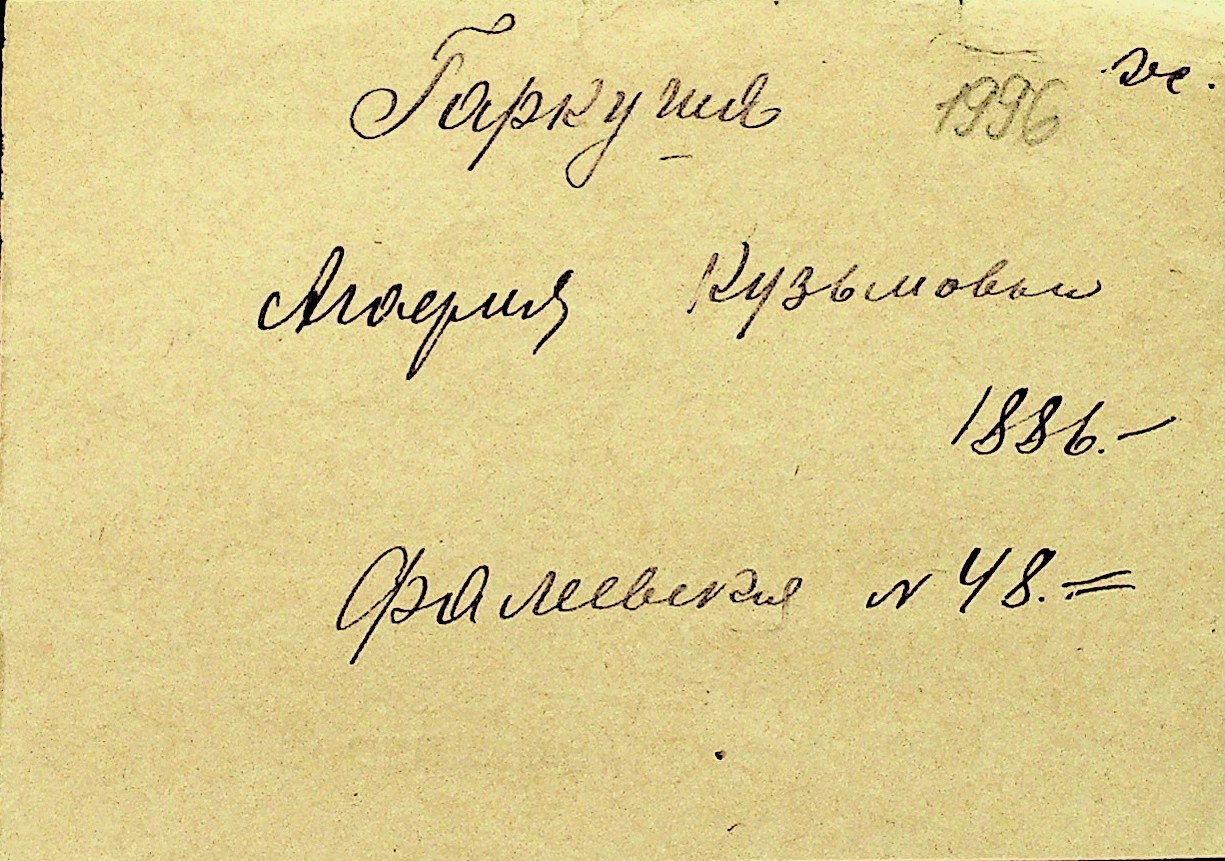 Гаркуша 1996 ж.
Агафия Кузьмовна
1886.-
Фалеевская N 48.=